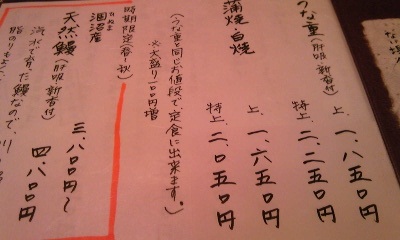 うな重(肝吸 新香付)
上 一、八五〇円
特上 二、二五〇円
蒲焼・白焼
上 一、六五〇円
特上 二、〇五〇円
(うな重と同じお値段で、定食に出来ます。)
※大盛り一〇〇円増
時期限定(春〜秋)
ひぬま
涸沼産
天然鰻(肝吸 新香付)
三、八〇〇円〜
四、八〇〇円
汽水で育った鰻なので、川
脂の